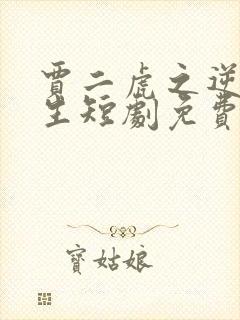 賈二虎之逆
生短劇免費
寳姑娘